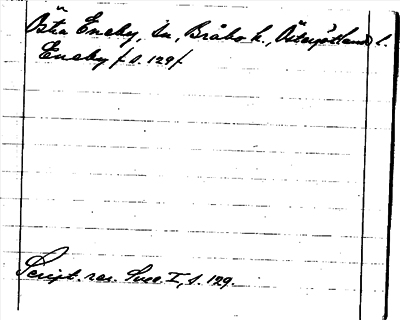 Östra Eneby, sn, Bråbo h., Östergötland l.
Eneby / s. 129 /
Script. rer. Suec. I, s. 129.